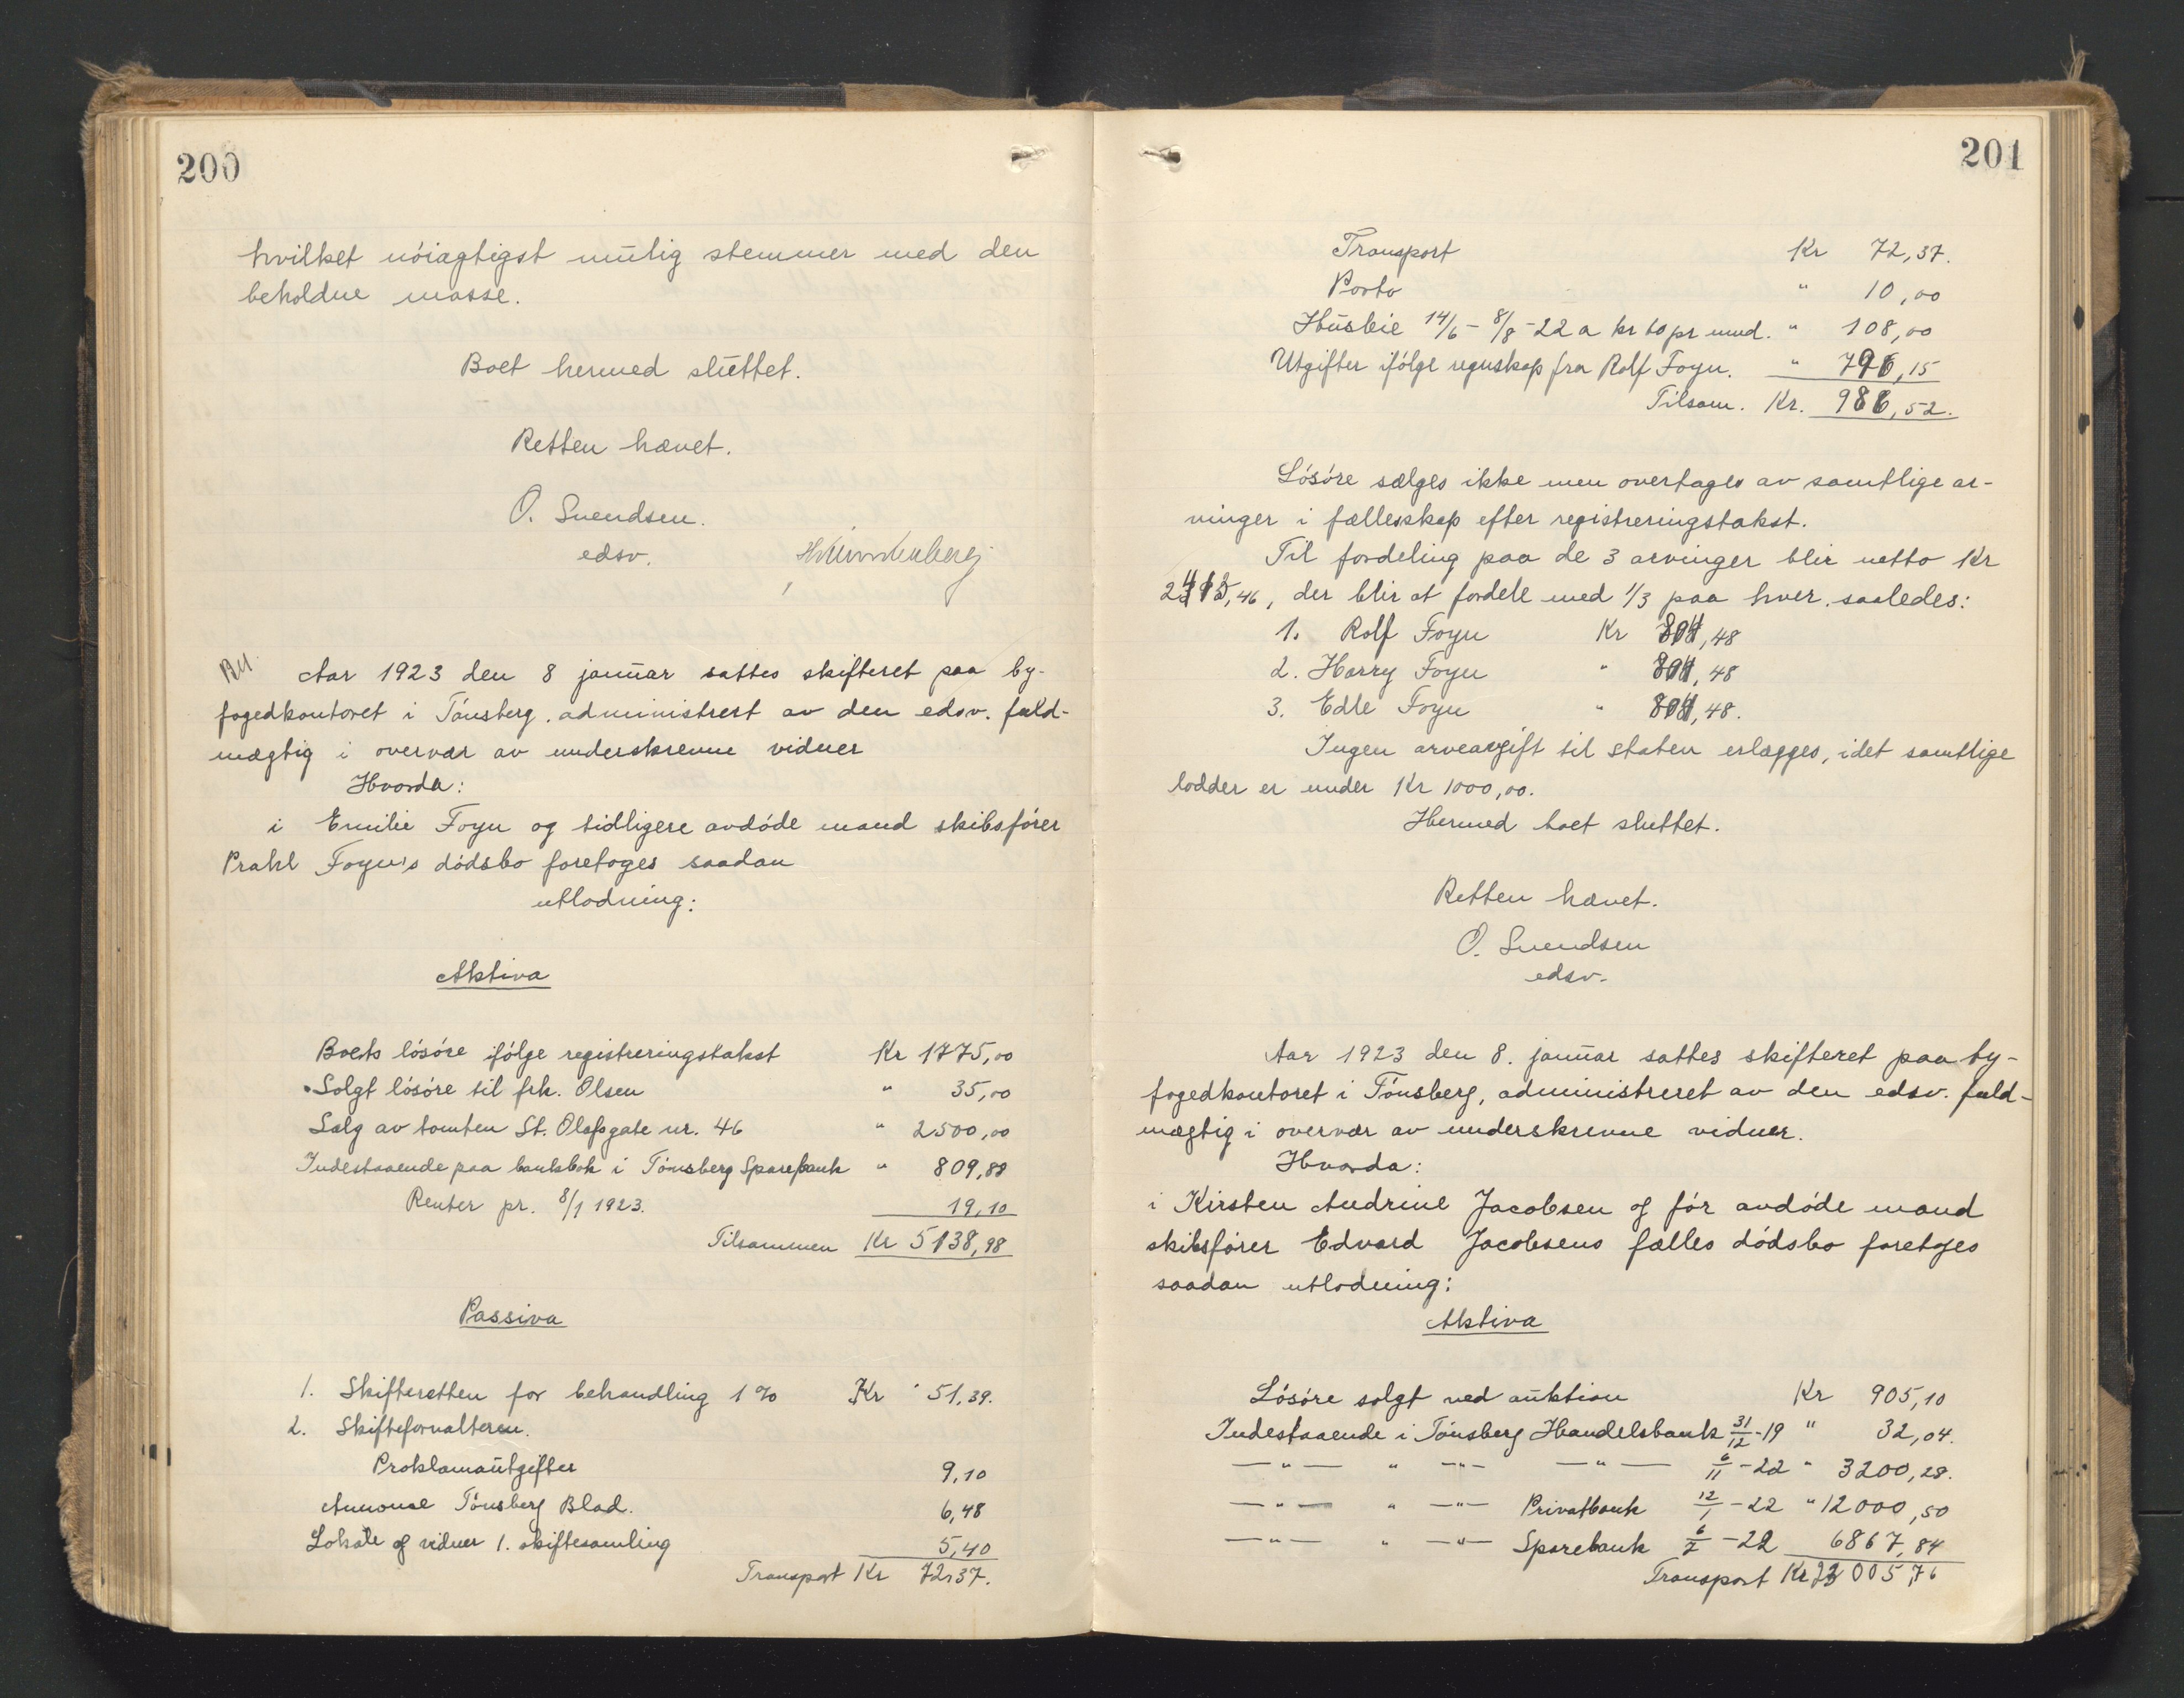 200
hvilket nöiagtigst mulig stemmer med den
beholdne masse.
Boet hermed sluttet.
Retten hævet.
O. Svendsen.
edsv.
Aar 1923 den 8 januar sattes skifteret paa by-
fogedkontoret i Tönsberg, administrert av den edsv. fuld-
mægtig i overvær av underskrevne vidner
Hvorda:
i Emilie Foyn og tidligere avdöde mand skibsförer
Prahl Foyn's dödsbo foretoges saadan
utlodning:
Aktiva
Boets lösöre ifölge registreringstakst Kr 1775,00
Solgt lösöre til frk. Olsen " 35,00
Salg av tomten St. Olafsgate nr. 46 " 2500,00
Indestaaende paa bankbok i Tönsberg Sparebank " 809,88
Renter pr. 8/1 1923. 19,10
Tilsammen Kr 5138,98
Passiva
1. Skifteretten for behandling 1 % Kr 51,39.
2. Skifteforvalteren.
Proklamautgifter 9,10
Annonse Tönsberg Blad. 6,48
Lokale og vidner 1. skiftesamling 5,40
Transport Kr 72,37.
201
Transport Kr 72,37.
Porto " 10,00
Husleie 14/6 - 8/8 -22 a kr 60 pr mnd. " 108,00
Utgifter ifölge regnskap fra Rolf Foyn. " 796,15
Tilsam. Kr. 986,52.
Lösöre sælges ikke men overtages av samtlige ar-
vinger i fællesskap efter registreringstakst.
Til fordeling paa de 3 arvinger blir netto Kr
2413,46, der blir at fordele med 1/3 paa hver, saaledes:
1. Rolf Foyn Kr 804,48
2. Harry Foyn " 804,48
3. Edle Foyn " 804,48.
Ingen arveavgift til staten erlægges, idet samtlige
lodder er under Kr 1000,00.
Hermed boet sluttet.
Retten hævet.
O. Svendsen
edsv.
Aar 1923 den 8. januar sattes skifteret paa by-
fogedkontoret i Tönsberg, administreret av den edsv. fuld-
mægtig i overvær av underskrevne vidner.
Hvorda:
i Kirsten Andrine Jacobsen ogför avdöde mand
skibsförer Edvard Jacobsens fælles dödsbo foretoges
saadan utlodning:
Aktiva
Lösöre solgt ved auktion Kr 905,10
Indestaaende i Tönsberg Handelsbank 31/12 -19 " 32,04.
—"— " —"— —"— 6/11 -22 " 3200,28.
—"— " —"— Privatbank 12/1 -22 " 12000,50
—"— " —"— Sparebank 6/2 -22 6867,84
Transport Kr 23005,76